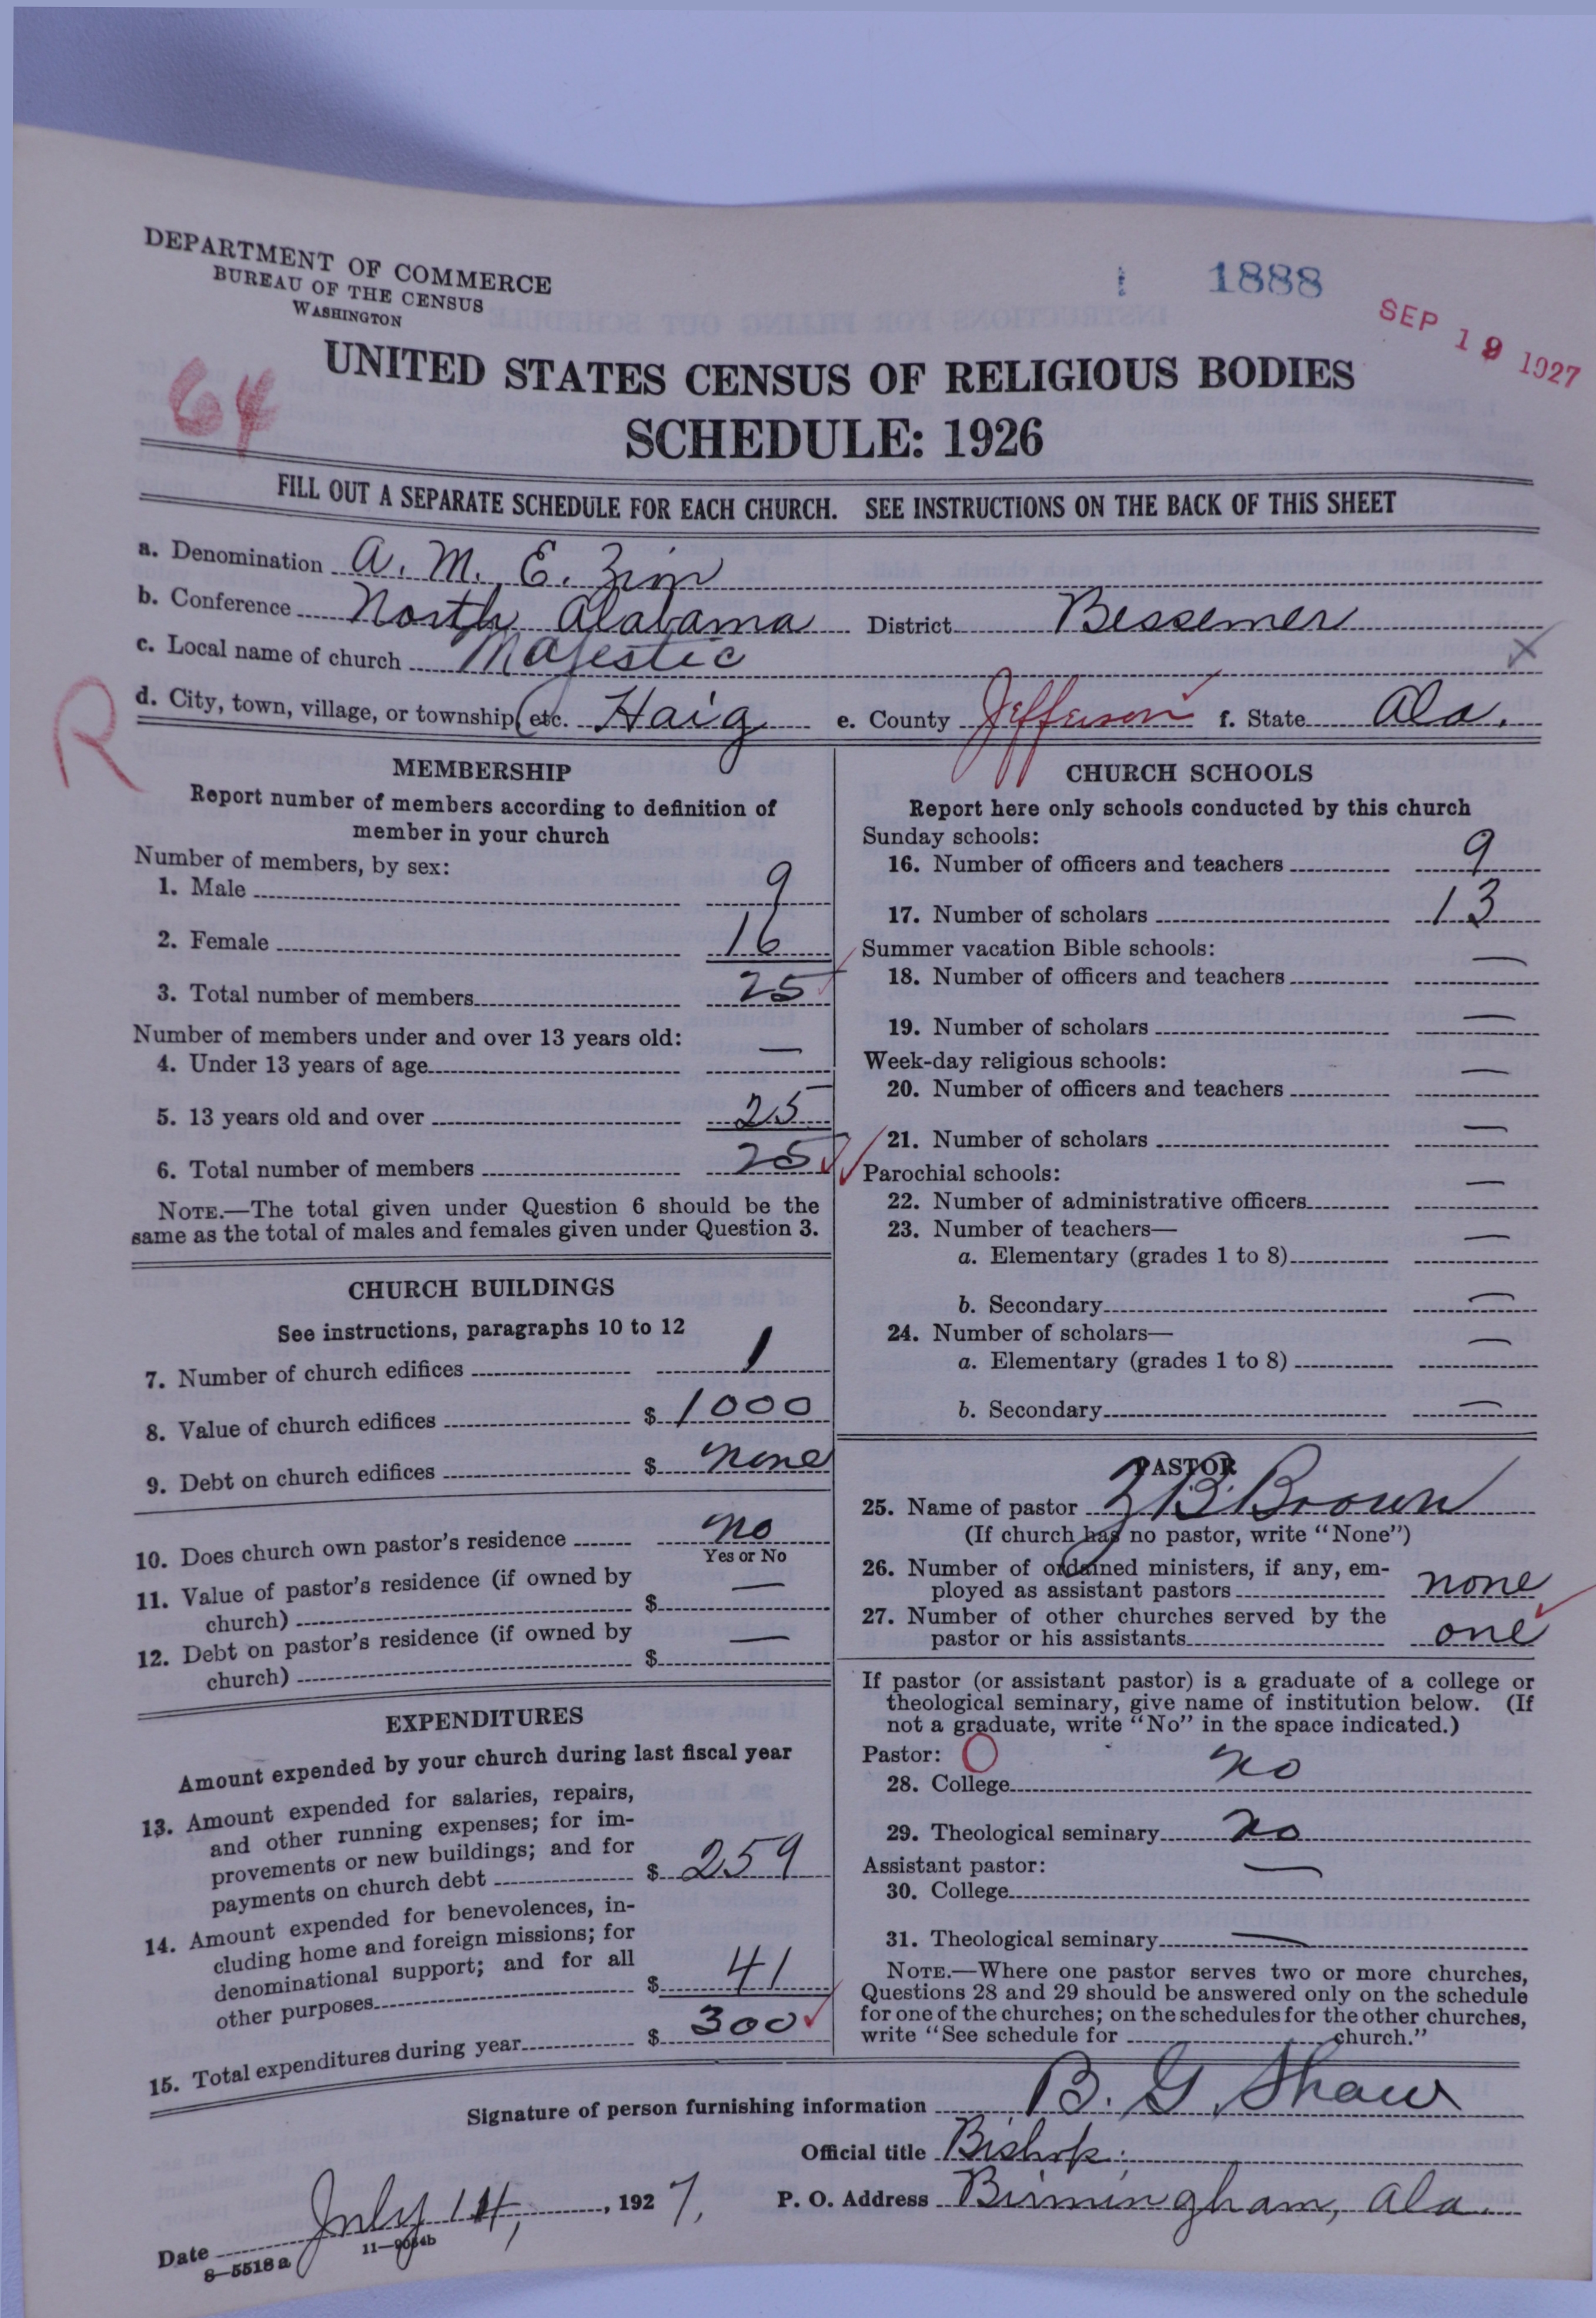 DEPARTMENT OF COMMERCE
BUREAU OF THE CENSUS
WASHINGTON
1888
SEP 19 1927
64
UNITED STATES CENSUS OF RELIGIOUS BODIES
SCHEDULE: 1926
FILL OUT A SEPARATE SCHEDULE FOR EACH CHURCH. SEE INSTRUCTIONS ON THE BACK OF THIS SHEET
a. Denomination A. M. E. Zion
b. Conference North Alabama District Bessemer
c. Local name of church Majestic X
R
d. City, town, village, or township, etc. Haig e. County Jefferson f. State Ala.
MEMBERSHIP
Report number of members according to definition of
member in your church
Number of members, by sex:
1. Male 9
2. Female 16
3. Total number of members 25
Number of members under and over 13 years old:
4. Under 13 years of age —
5. 13 years old and over 25
6. Total number of members 25
NOTE.—The total given under Question 6 should be the
same as the total of males and females given under Question 3.
CHURCH BUILDINGS
See instructions, paragraphs 10 to 12
7. Number of church edifices 1
8. Value of church edifices $ 1000
9. Debt on church edifices $ none
10. Does church own pastor's residence no
Yes or No
11. Value of pastor's residence (if owned by
church) $ —
12. Debt on pastor's residence (if owned by
church) $ —
EXPENDITURES
Amount expended by your church during last fiscal year
13. Amount expended for salaries, repairs,
and other running expenses; for im-
provements or new buildings; and for
payments on church debt $ 259
14. Amount expended for benevolences, in-
cluding home and foreign missions; for
denominational support; and for all
other purposes $ 41
15. Total expenditures during year $ 300
CHURCH SCHOOLS
Report here only schools conducted by this church
Sunday schools:
16. Number of officers and teachers 9
17. Number of scholars 13
Summer vacation Bible schools:
18. Number of officers and teachers —
19. Number of scholars —
Week-day religious schools:
20. Number of officers and teachers —
21. Number of scholars —
Parochial schools:
22. Number of administrative officers —
23. Number of teachers—
a. Elementary (grades 1 to 8) —
b. Secondary —
24. Number of scholars—
a. Elementary (grades 1 to 8) —
b. Secondary —
PASTOR
25. Name of pastor Z B. Brown
(If church has no pastor, write "None")
26. Number of ordained ministers, if any, em-
ployed as assistant pastors none
27. Number of other churches served by the
pastor or his assistants one
If pastor (or assistant pastor) is a graduate of a college or
theological seminary, give name of institution below. (If
not a graduate, write "No" in the space indicated.)
Pastor: O
28. College no
29. Theological seminary no
Assistant pastor:
30. College —
31. Theological seminary —
NOTE.—Where one pastor serves two or more churches,
Questions 28 and 29 should be answered only on the schedule
for one of the churches; on the schedules for the other churches,
write "See schedule for church."
Signature of person furnishing information B. G. Shaw
Official title Bishop.
Date July 14, 1927, P. O. Address Birmingham, Ala.
8—5518 a 11—9054b